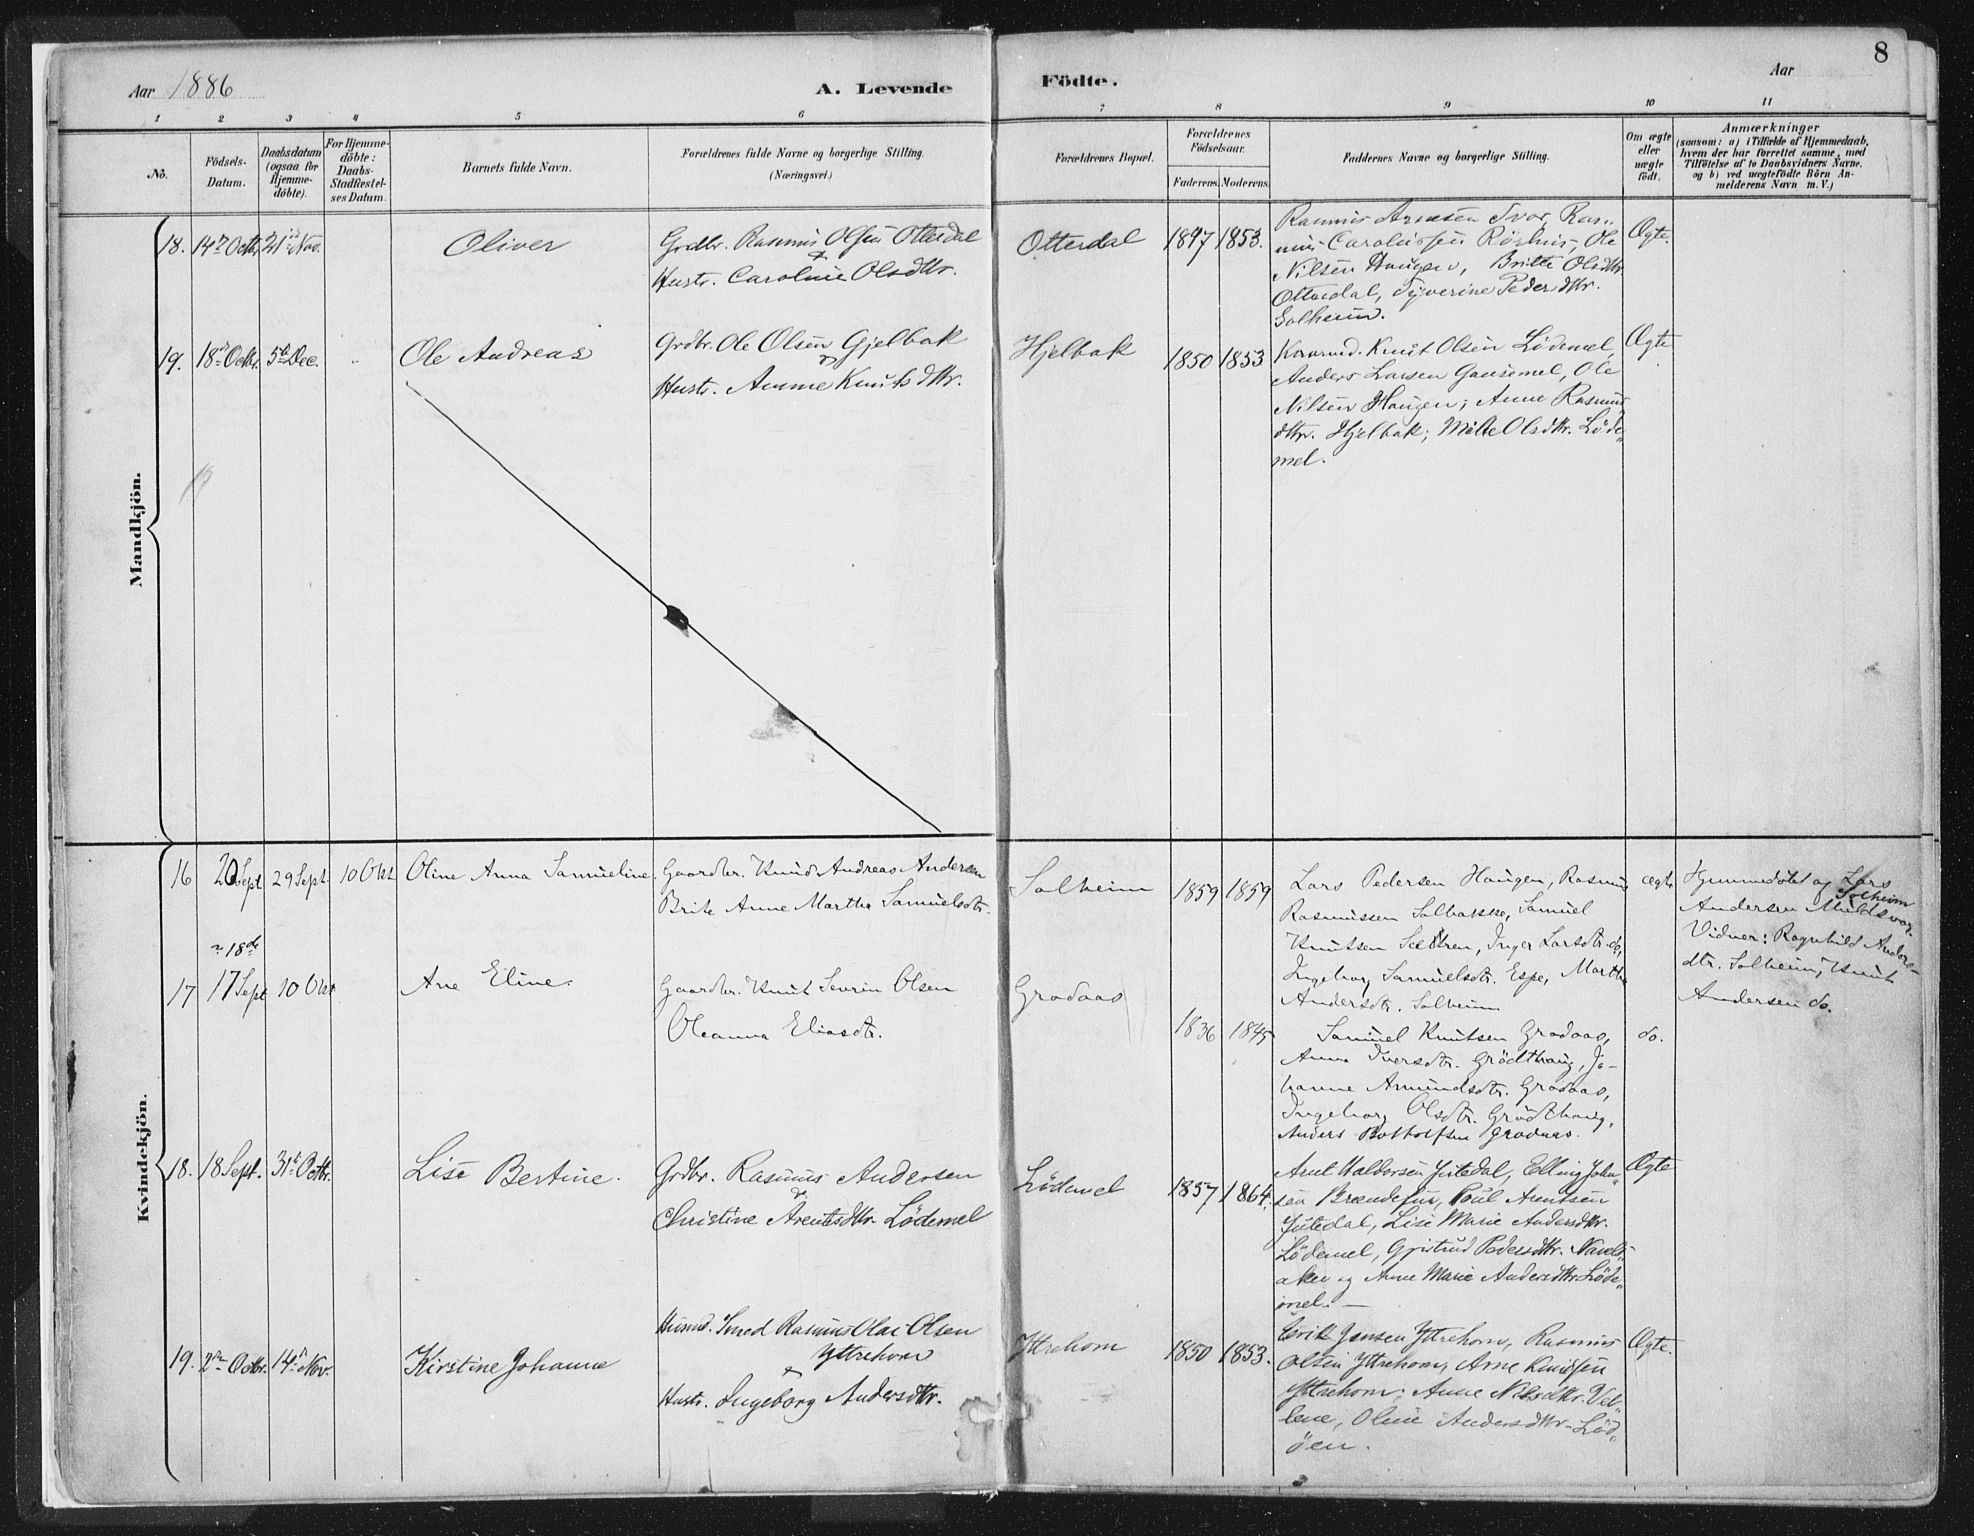 8
Aar 1886
A. Levende
Födte.
Aar
1 2 3 4 5 6 7 8 9 10 11
No.
Födsels-
Datum.
Daabsdatum
(ogsaa for
Hjemme-
döbte).
For Hjemme-
döbte:
Daabs-
Stadfæstel-
ses Datum.
Barnets fulde Navn.
Forældrenes fulde Navne og borgerlige Stilling.
(Næringsvei.)
Forældrenes Bopæl.
Forældrenes
Födselsaar.
Faderens. Moderens.
Faddernes Navne og borgerlig Stilling.
Om ægte
eller
uægte
födt.
Anmærkninger
(saasom: a) i Tilfælde af Hjemmedaab,
hvem der har forrettet samme, med
Tilföielse af to Daabsvidners Navne,
og b) ved uægtefödte Börn An-
melderens Navn m. V.)
Mandkjön.
18. 14de Octbr. 21de Nov.
Oliver
Grdbr. Rasmus Olsen Otterdal
&
Hustr. Caroline Olsdtr.
Otterdal
1847 1853.
Rasmus Arnesen Tvor, Ras-
mus Carolussen Röshus, Ole
Nilsen Haugen, Britte Olsdtr
Otterdal, Syverine Pedersdtr.
Solheim.
Ægte.
19. 18de Octbr. 5te Dec.
Ole Andreas
Grdbr. Ole Olsen Gjelbak
&
Hustr. Anne Knutsdtr.
Hjelbak
1850 1853
Knut Olsen Lödemel,
Anders Larsen Gausemel, Ole
Nilsen Haugen; Anne Rasmus
dtr. Hjelbak; Malte Olsdtr. Löde-
mel.
Ægte
Kvindekjön.
16 20 Sept 29 Sept. 10 Okt
Oline Anna Samueline.
Gaardbr. Knud Andreas Andersen
Brite Anne Martha Samuelsdtr.
Solheim
1859 1859
Lars Pedersen Haugen, Rasmus
Rasmussen Solbakke, Samuel
Knutsen Sætren, Inger Larsdtr. do,
Ingeborg Samuelsdtr. Espe, Martha
Andersdtr. Solheim
ægte
Hjemmedöbt af Lars
Solheim
Andersen Mulsvor.
Vidner: Ragnhild Anders-
dtr. Solheim, Knut
Andersen do.
18de
17 17 Sept 10 Okt
Ane Eline.
Gaardbr. Knut Severin Olsen
Oleanna Eliasdtr.
Grodaas
1836 1845
Samuel Knutsen Grodaas,
Anna Iversdtr. Grödthaug, Jo-
hanne Amundsdtr. Grodaas,
Ingeborg Olsdtr. Grödthaug,
Anders Bottolfsen Grodaas.
do.
18. 18 Sept. 31te Octbr.
Lise Bertine.
Grdbr. Rasmus Andersen
&
Christine Arentsdtr. Lödemel
Lödemel
1857 1864.
Arnt Haldorsen Jutedal, Elling John-
sen Brændefur, Poul Arentsen
Jutedal, Lise Marie Andersdtr.
Lödemel, Gjertrud Pedersdtr. Navels-
aker og Anne Marie Andersdtr. Löde-
mel. —
Ægte
19. 2den Octbr. 14de Nov.
Kirstine Johanne
Husmd. Smed Rasmus Olai Olsen
Yttrehorn
&
Hustr. Ingeborg Andersdtr.
Yttrehorn
1850 1853.
Erik Jensen Yttrehorn, Rasmus
Olsen Yttrehorn, Arne Knudsen
Yttrehorn; Anne Nilsdtr. Vel-
lene, Oline Andersdtr. Löd-
öen.
Ægte.